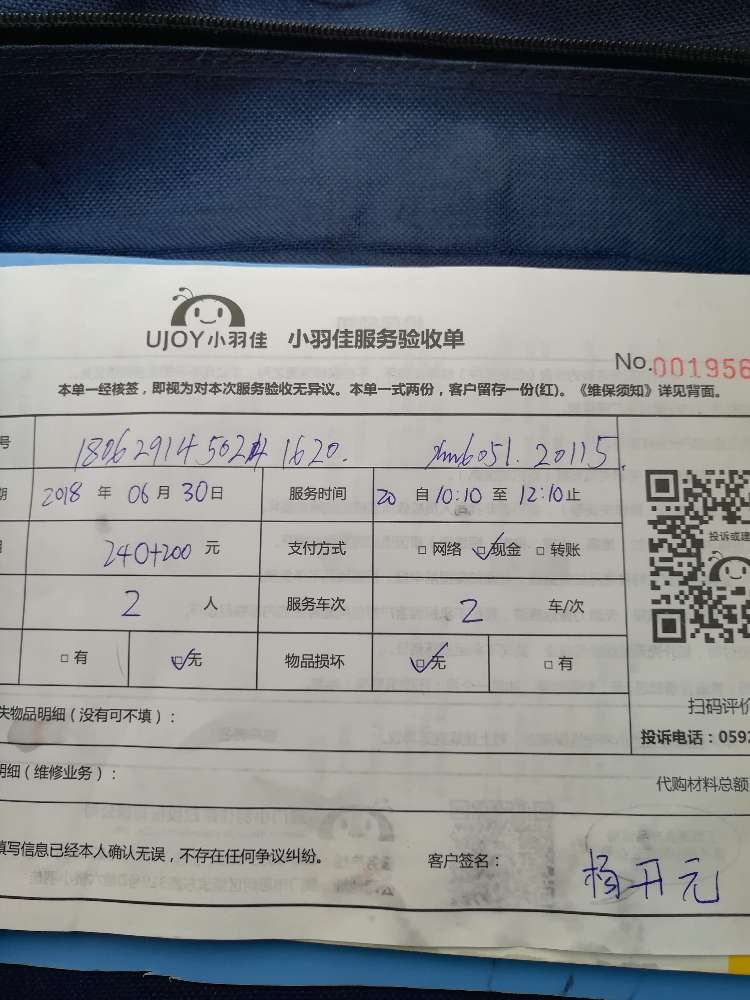 UJOY小羽佳 小羽佳服务验收单
No.001956
本单一经核签，即视为对本次服务验收无异议。本单一式两份，客户留存一份(红)。《维保须知》详见背面。
号 1620. 20115.
期 2018 年 06 月 30 日 服务时间 20 自 10:10 至 12:10 止
240+200 元 支付方式 □ 网络 □ 现金 □ 转账
2 人 服务车次 2 车/次
□ 有 □ 无 物品损坏 □ 无 □ 有
投诉或建
扫码评价
失物品明细（没有可不填）：
投诉电话：059
明细（维修业务）：
代购材料总额
填写信息已经本人确认无误，不存在任何争议纠纷。 客户签名： 杨开元